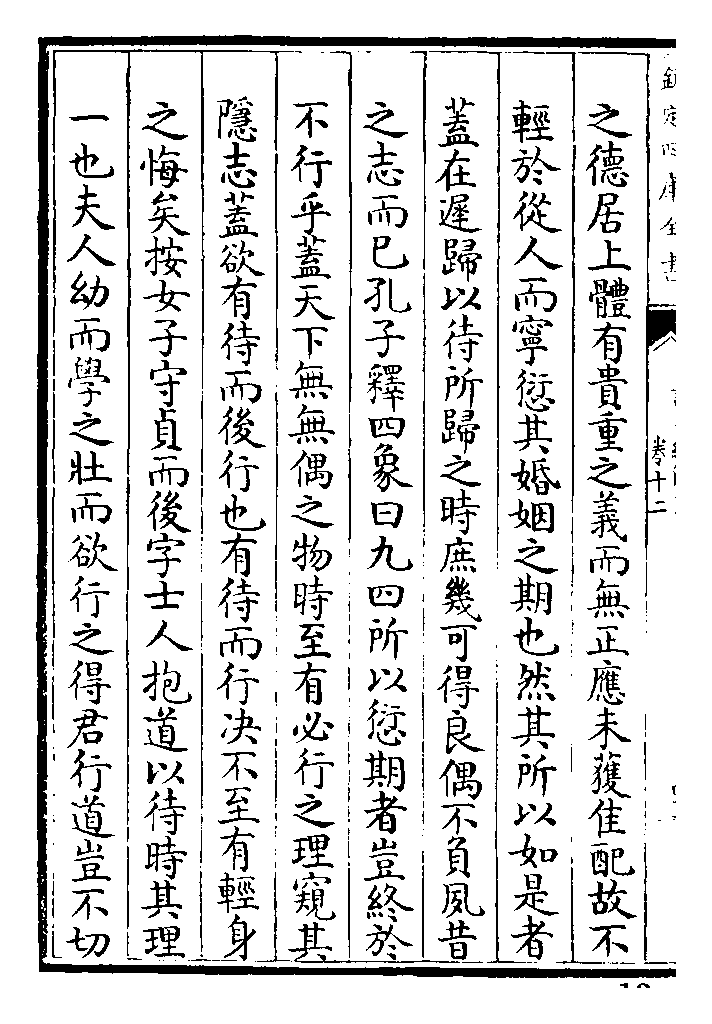 欽定四庫全書
卷十二
之德居上體有貴重之義而無正應未獲佳配故不
輕於從人而寧愆其婚姻之期也然其所以如是者
蓋在遲歸以待所歸之時庶幾可得良偶不負夙昔
之志而已孔子釋四象曰九四所以愆期者豈終於
不行乎蓋天下無無偶之物時至有必行之理窺其
隱志蓋欲有待而後行也有待而行决不至有輕身
之悔矣按女子守貞而後字士人抱道以待時其理
一也夫人幼而學之壯而欲行之得君行道豈不切